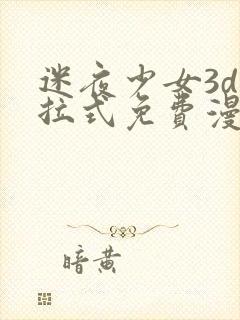 迷夜少女3d
拉式免費漫
暗黄